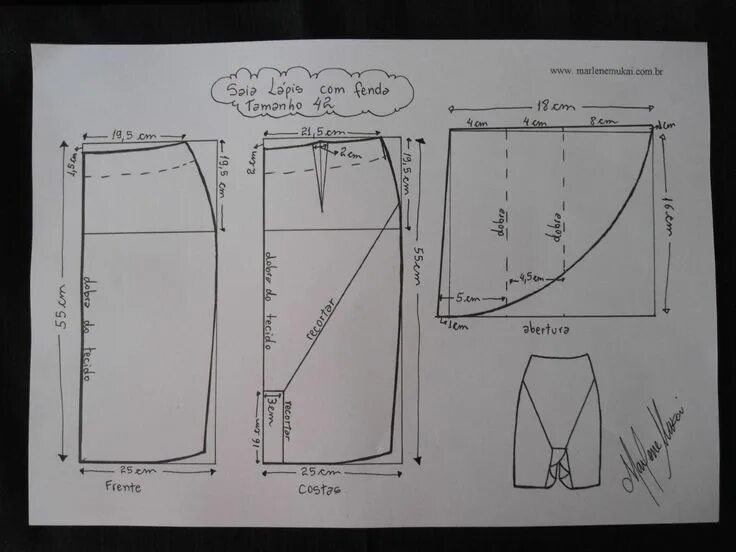 www. marlenemukai.com.br
Saia Lápis com fenda
Tamanho 42
19,5 cm
1,5 cm
19,5 cm
55 cm
dobra do tecido
25 cm
Frente
21,5 cm
2 cm
2 cm
19,5 cm
55 cm
dobra do tecido
recortar
3 cm
recortar
16 cm
25 cm
Costas
18 cm
4 cm
4 cm
8 cm
1 cm
dobra
dobra
16 cm
4,5 cm
5 cm
1 cm
abertura
Marlene Mukai